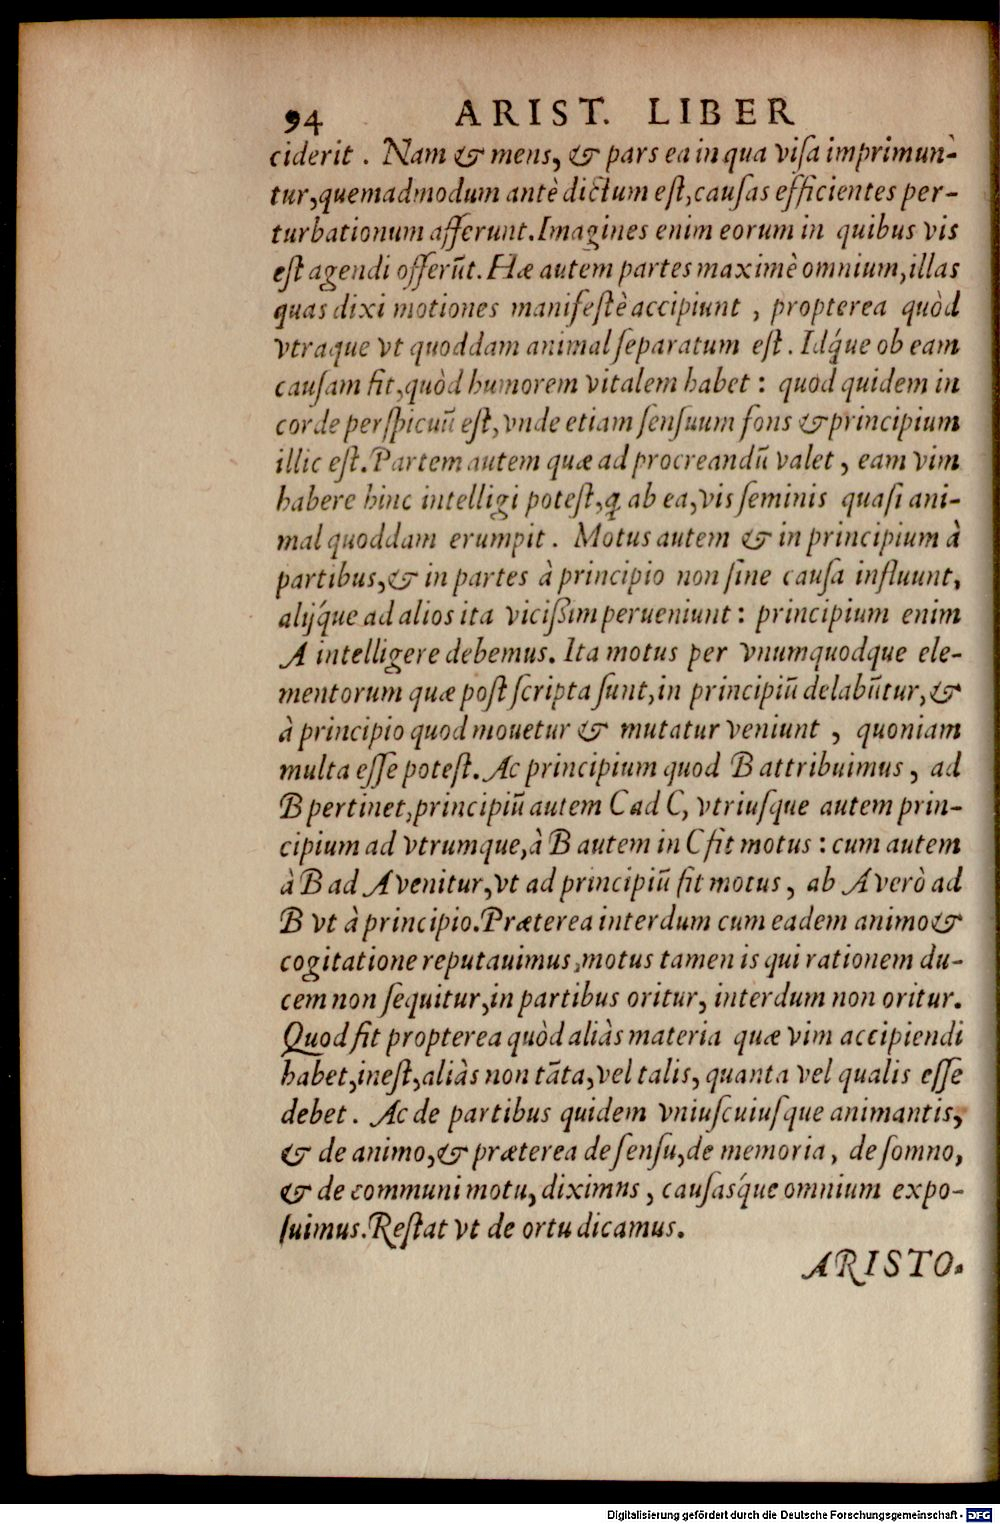 94 ARIST. LIBER
ciderit. Nam & mens, & pars ea in qua viſa imprimun-
tur, quemadmodum antè dictum eſt, cauſas efficientes per-
turbationum afferunt. Imagines enim eorum in quibus vis
eſt agendi offerũt. Hæ autem partes maximè omnium, illas
quas dixi motiones manifeſtè accipiunt, propterea quòd
vtraque vt quoddam animal ſeparatum eſt. Idq́ue ob eam
cauſam fit, quòd humorem vitalem habet: quod quidem in
corde perſpicuũ eſt, vnde etiam ſenſuum fons & principium
illic eſt. Partem autem quæ ad procreandũ valet, eam vim
habere hinc intelligi poteſt, ꝙ ab ea, vis ſeminis quaſi ani-
mal quoddam erumpit. Motus autem & in principium à
partibus, & in partes à principio non ſine cauſa influunt,
alijq́ue ad alios ita vicißim perueniunt: principium enim
A intelligere debemus. Ita motus per vnumquodque ele-
mentorum quæ poſt ſcripta ſunt, in principiũ delabũtur, &
à principio quod mouetur & mutatur veniunt, quoniam
multa eſſe poteſt. Ac principium quod B attribuimus, ad
B pertinet, principiũ autem C ad C, vtriuſque autem prin-
cipium ad vtrumque, à B autem in C fit motus: cum autem
à B ad A venitur, vt ad principiũ fit motus, ab A verò ad
B vt à principio. Præterea interdum cum eadem animo &
cogitatione reputauimus, motus tamen is qui rationem du-
cem non ſequitur, in partibus oritur, interdum non oritur.
Quod fit propterea quòd aliàs materia quæ vim accipiendi
habet, ineſt, aliàs non tãta, vel talis, quanta vel qualis eſſe
debet. Ac de partibus quidem vniuſcuiuſque animantis,
& de animo, & præterea de ſenſu, de memoria, de ſomno,
& de communi motu, diximns, cauſasq́ue omnium expo-
ſuimus. Reſtat vt de ortu dicamus.
ARISTO.
Digitalisierung gefördert durch die Deutsche Forschungsgemeinschaft - DFG